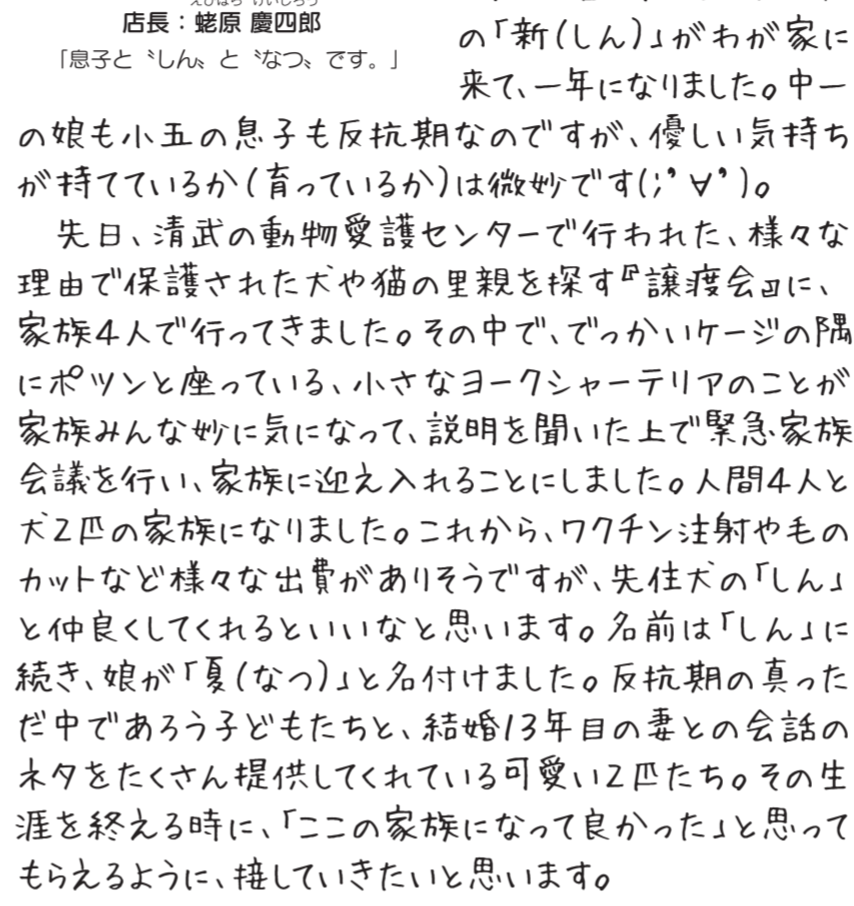 えびはら けいしろう
店長：蛯原 慶四郎
「息子と〝しん〟と〝なつ〟です。」
の「新(しん)」がわが家に
来て、一年になりました。中一
の娘も小五の息子も反抗期なのですが、優しい気持ち
が持てているか(育っているか)は微妙です(;'∀')。
先日、清武の動物愛護センターで行われた、様々な
理由で保護された犬や猫の里親を探す『譲渡会』に、
家族4人で行ってきました。その中で、でっかいケージの隅
にポツンと座っている、小さなヨークシャーテリアのことが
家族みんな妙に気になって、説明を聞いた上で緊急家族
会議を行い、家族に迎え入れることにしました。人間4人と
犬2匹の家族になりました。これから、ワクチン注射や毛の
カットなど様々な出費がありそうですが、先住犬の「しん」
と仲良くしてくれるといいなと思います。名前は「しん」に
続き、娘が「夏(なつ)」と名付けました。反抗期の真った
だ中であろう子どもたちと、結婚13年目の妻との会話の
ネタをたくさん提供してくれている可愛い2匹たち。その生
涯を終える時に、「ここの家族になって良かった」と思って
もらえるように、接していきたいと思います。